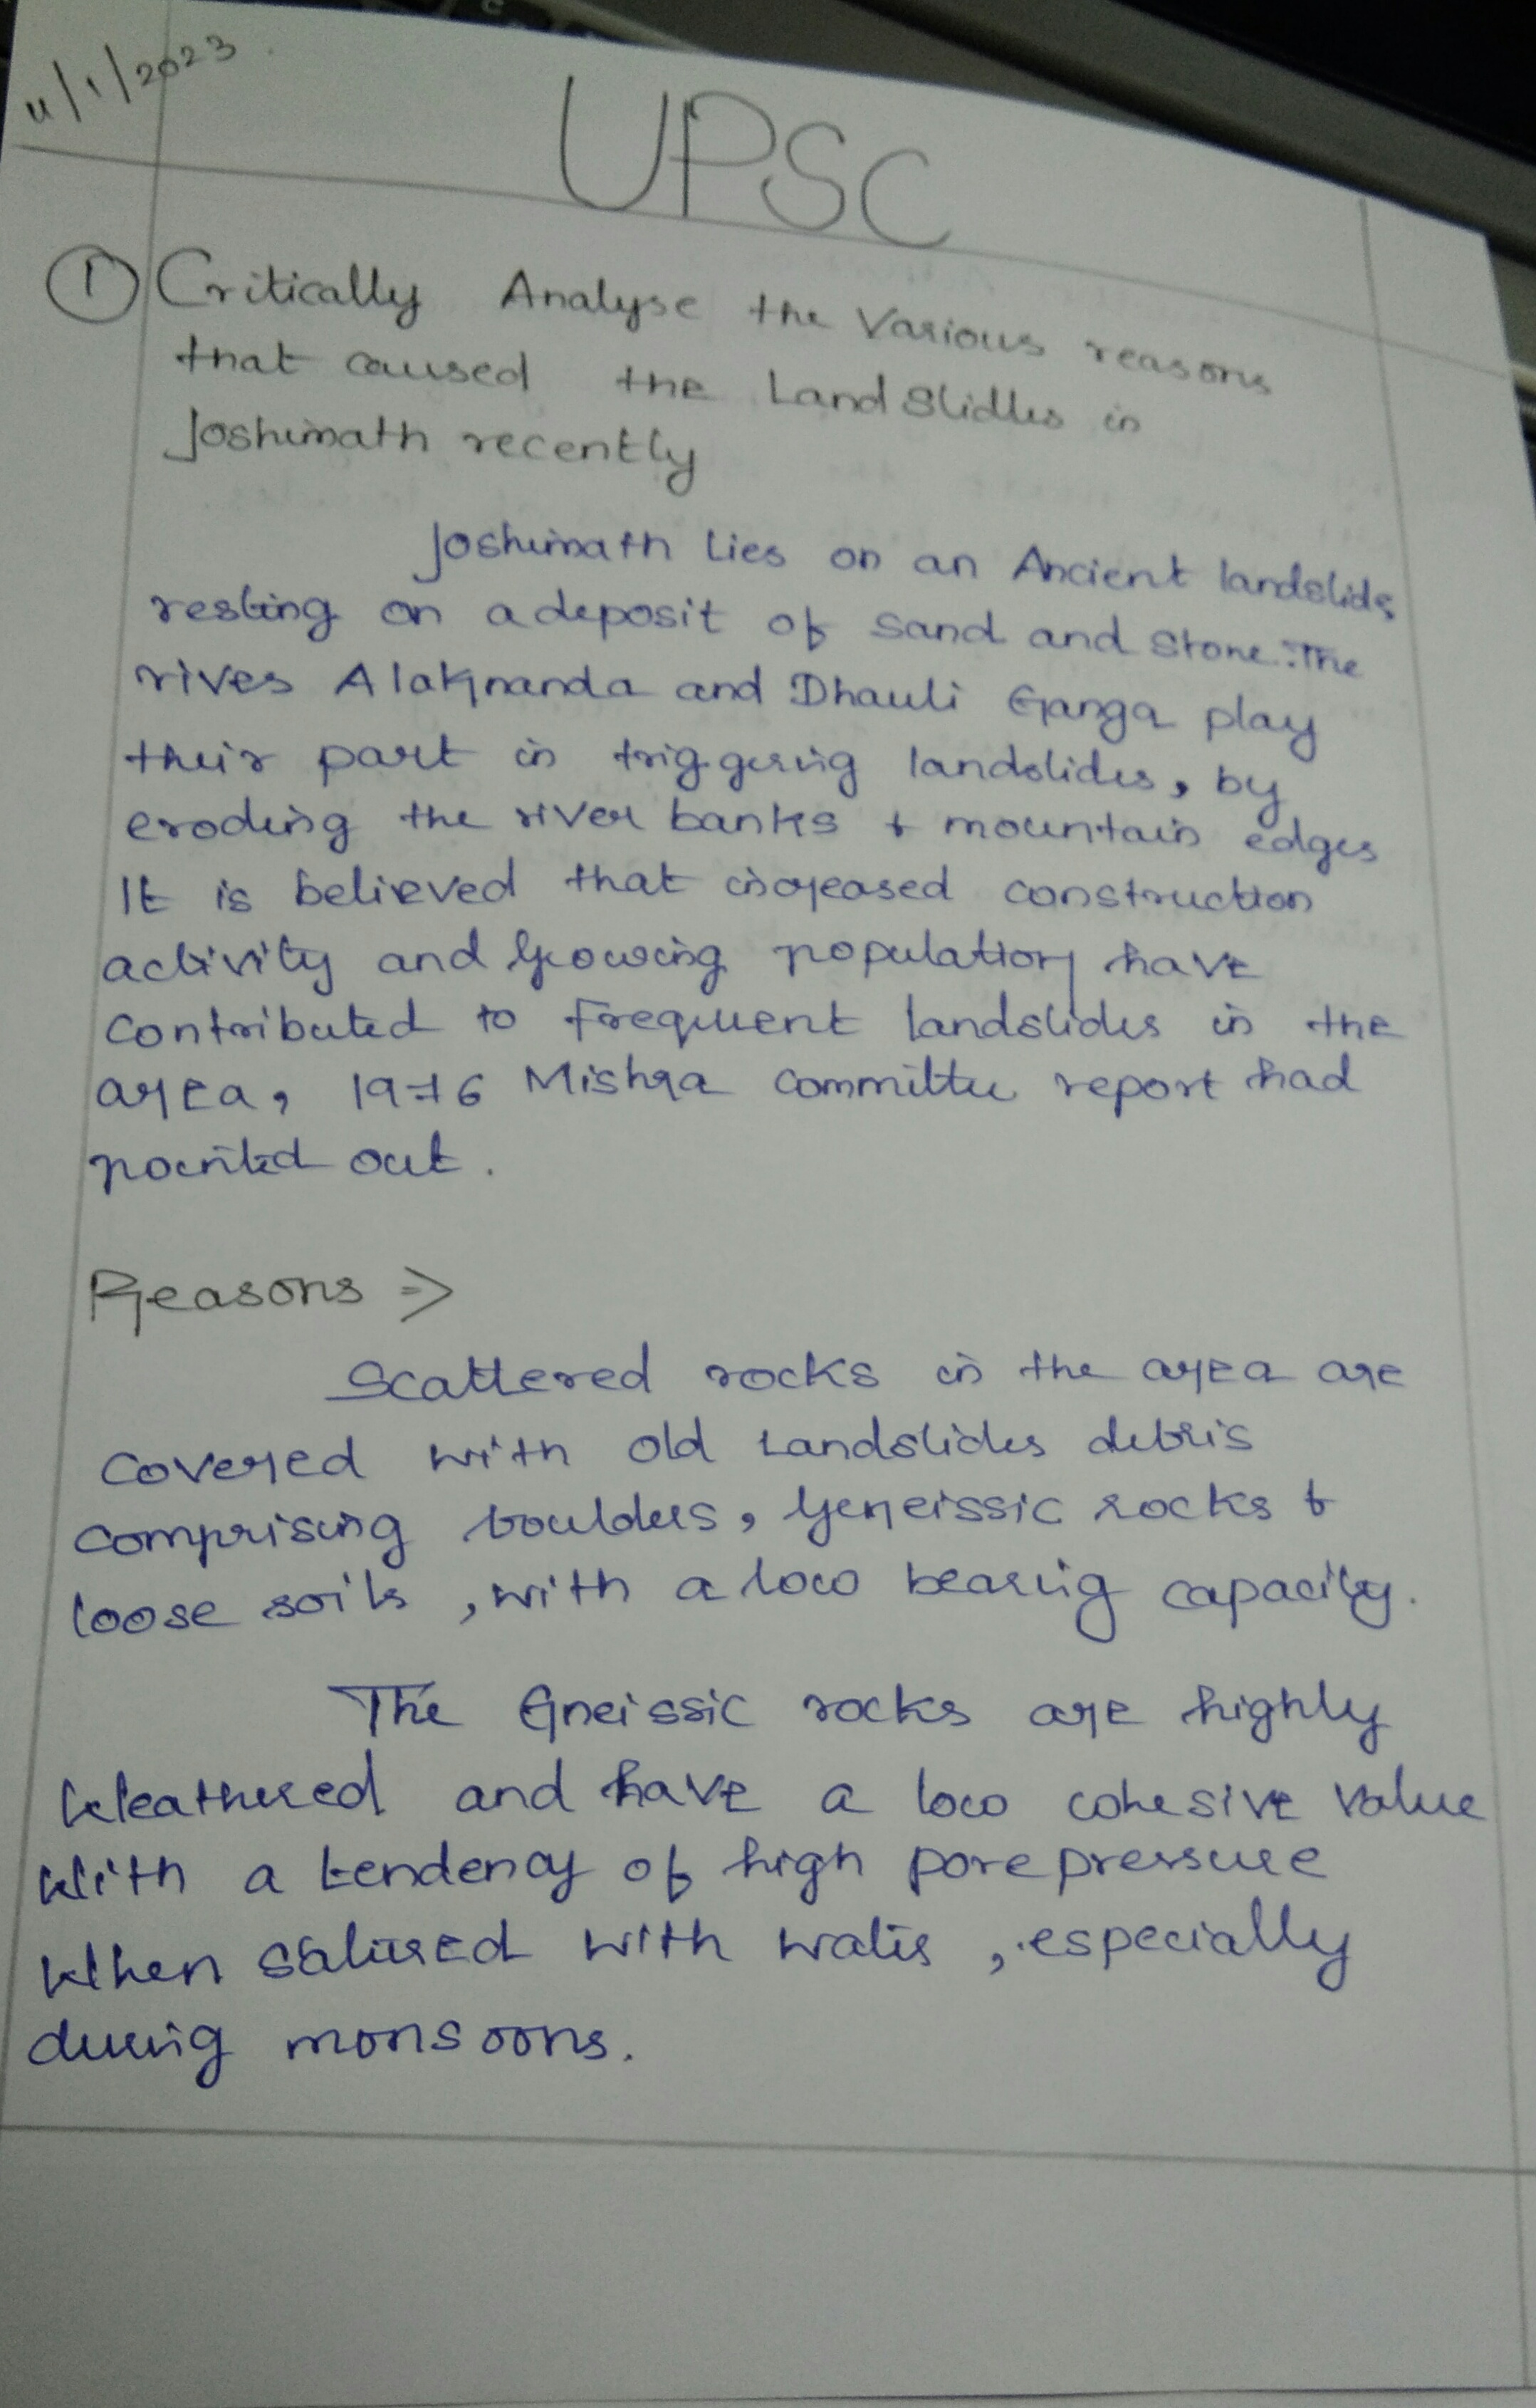 11/1/2023
UPSC
① Critically Analyse the Various reasons
that caused the Land Slidles in
Joshimath recently
Joshimath Lies on an Ancient landslide,
resting on a deposit of sand and stone. The
rives Alaknanda and Dhauli Ganga play
their part in triggering landslides, by
eroding the river banks & mountain edges
It is believed that increased construction
activity and growing population have
contributed to frequent landslides in the
area, 1976 Mishra committee report had
pointed out.
Reasons =>
Scattered rocks in the area are
covered with old Landslides debris
comprising boulders, geneissic rocks &
loose soils, with a low bearing capacity.
The Gneissic rocks are highly
Weathered and have a low cohesive value
With a tendency of high pore pressure
When satured with water, especially
during monsoons.